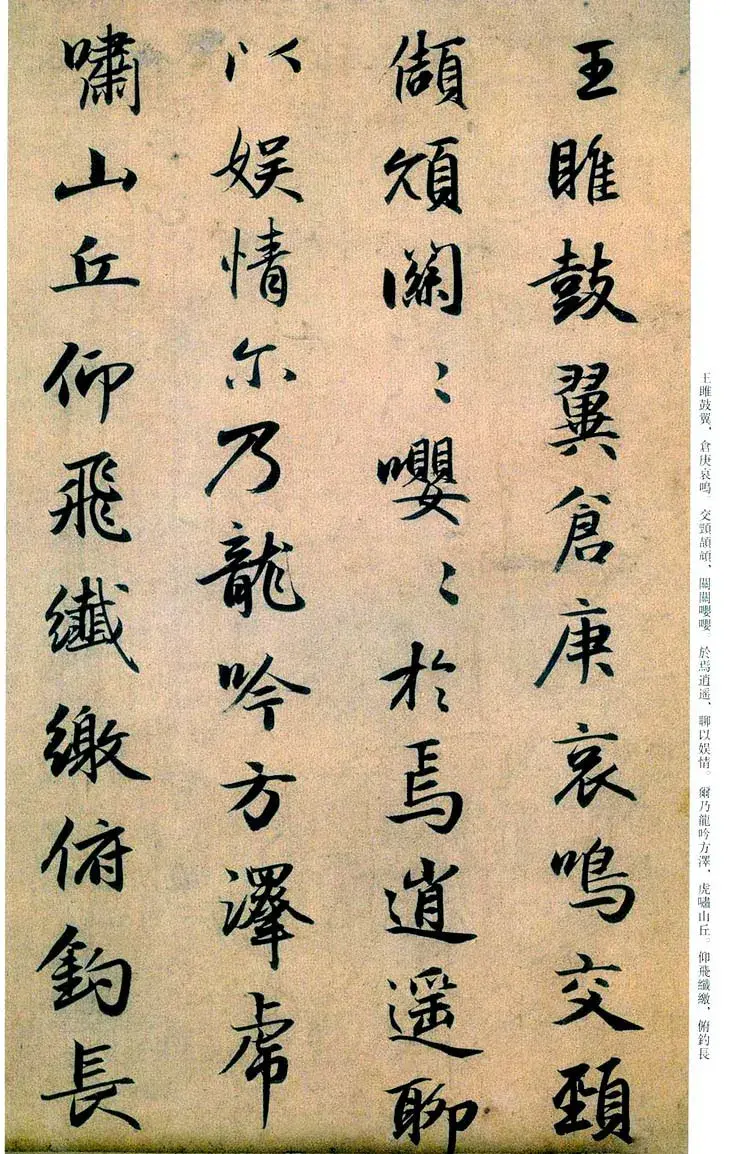 王雎鼓翼倉庚哀鳴交頸
頡頏關〻嚶〻於焉逍遥聊
以娱情尔乃龍吟方澤虎
嘯山丘仰飛纖繳俯釣長
王雎鼓翼，倉庚哀鳴。交頸頡頏，關關嚶嚶。於焉逍遥，聊以娱情。爾乃龍吟方澤，虎嘯山丘。仰飛纖繳，俯釣長